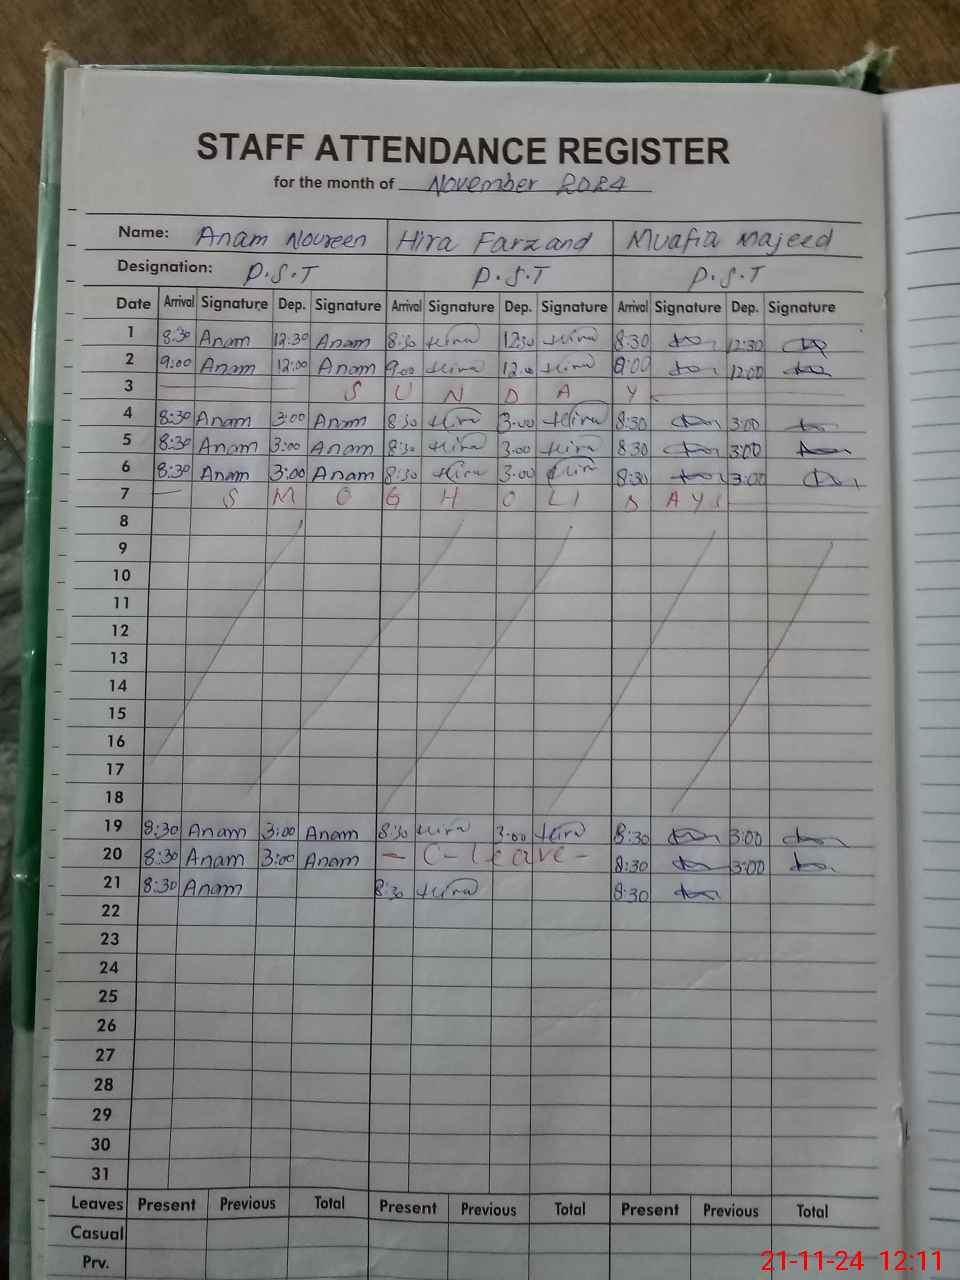 STAFF ATTENDANCE REGISTER
for the month of November 2024
Name: Anam Noureen Hira Farzand Muafia Majeed
Designation: P.S.T P.S.T P.S.T
Date Arrival Signature Dep. Signature Arrival Signature Dep. Signature Arrival Signature Dep. Signature
1 8:30 Anam 12:30 Anam 8:30 Hira 12:30 Hira 8:30 12:30
2 9:00 Anam 12:00 Anam 9:00 Hira 12:00 Hira 9:00 12:00
3 S U N D A Y
4 8:30 Anam 3:00 Anam 8:30 Hira 3:00 Hira 8:30 3:00
5 8:30 Anam 3:00 Anam 8:30 Hira 3:00 Hira 8:30 3:00
6 8:30 Anam 3:00 Anam 8:30 Hira 3:00 Hira 8:30 3:00
7 S M O G H O L I D A Y S
8
9
10
11
12
13
14
15
16
17
18
19 8:30 Anam 3:00 Anam 8:30 Hira 3:00 Hira 8:30 3:00
20 8:30 Anam 3:00 Anam - C-leave - 8:30 3:00
21 8:30 Anam 8:30 Hira 8:30
22
23
24
25
26
27
28
29
30
31
Leaves Present Previous Total Present Previous Total Present Previous Total
Casual
Prv.
21-11-24 12:11